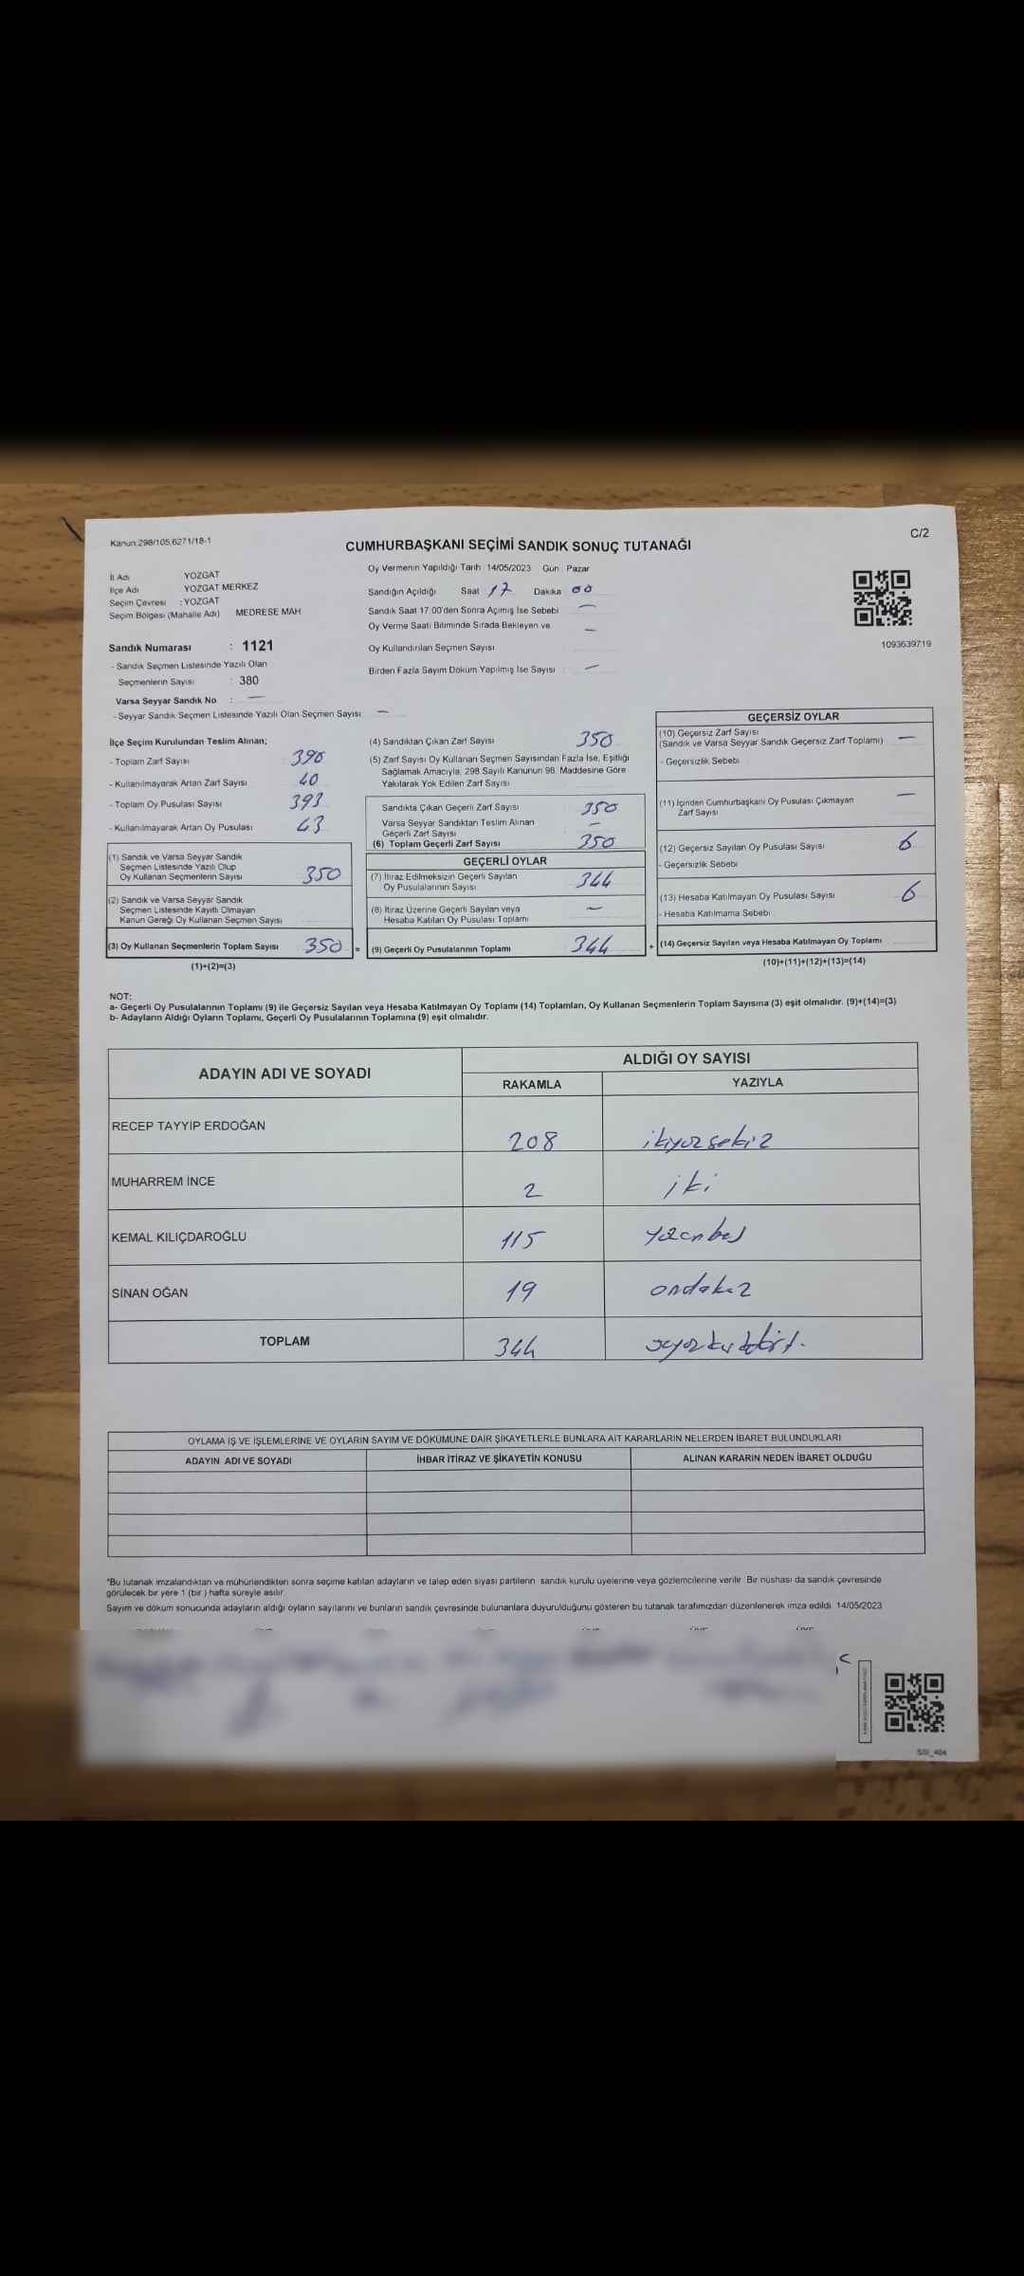 Kanun:298/105,6271/18-1
C/2
CUMHURBAŞKANI SEÇİMİ SANDIK SONUÇ TUTANAĞI
İl Adı YOZGAT
İlçe Adı YOZGAT MERKEZ
Seçim Çevresi : YOZGAT
Seçim Bölgesi (Mahalle Adı) MEDRESE MAH
Oy Vermenin Yapıldığı Tarih 14/05/2023 Gün Pazar
Sandığın Açıldığı Saat 17 Dakika 00
Sandık Saat 17:00'den Sonra Açımış İse Sebebi —
Oy Verme Saati Bitiminde Sırada Bekleyen ve
Oy Kullandırılan Seçmen Sayısı —
Birden Fazla Sayım Döküm Yapılmış İse Sayısı : —
1093639719
Sandık Numarası : 1121
- Sandık Seçmen Listesinde Yazılı Olan
Seçmenlerin Sayısı : 380
Varsa Seyyar Sandık No : —
- Seyyar Sandık Seçmen Listesinde Yazılı Olan Seçmen Sayısı —
İlçe Seçim Kurulundan Teslim Alınan;
- Toplam Zarf Sayısı 390
- Kullanılmayarak Artan Zarf Sayısı 40
- Toplam Oy Pusulası Sayısı 393
- Kullanılmayarak Artan Oy Pusulası 43
(1) Sandık ve Varsa Seyyar Sandık
Seçmen Listesinde Yazılı Olup
Oy Kullanan Seçmenlerin Sayısı 350
(2) Sandık ve Varsa Seyyar Sandık
Seçmen Listesinde Kayıtlı Olmayan
Kanun Gereği Oy Kullanan Seçmen Sayısı
(3) Oy Kullanan Seçmenlerin Toplam Sayısı 350 =
(1)+(2)=(3)
(4) Sandıktan Çıkan Zarf Sayısı 350
(5) Zarf Sayısı Oy Kullanan Seçmen Sayısından Fazla İse, Eşitliği
Sağlamak Amacıyla, 298 Sayılı Kanunun 98. Maddesine Göre
Yakılarak Yok Edilen Zarf Sayısı
Sandıkta Çıkan Geçerli Zarf Sayısı 350
Varsa Seyyar Sandıktan Teslim Alınan
Geçerli Zarf Sayısı —
(6) Toplam Geçerli Zarf Sayısı 350
GEÇERLİ OYLAR
(7) İtiraz Edilmeksizin Geçerli Sayılan
Oy Pusulalarının Sayısı 344
(8) İtiraz Üzerine Geçerli Sayılan veya
Hesaba Katılan Oy Pusulası Toplamı —
(9) Geçerli Oy Pusulalarının Toplamı 344 +
GEÇERSİZ OYLAR
(10) Geçersiz Zarf Sayısı
(Sandık ve Varsa Seyyar Sandık Geçersiz Zarf Toplamı) —
- Geçersizlik Sebebi
(11) İçinden Cumhurbaşkanı Oy Pusulası Çıkmayan
Zarf Sayısı —
(12) Geçersiz Sayılan Oy Pusulası Sayısı 6
- Geçersizlik Sebebi
(13) Hesaba Katılmayan Oy Pusulası Sayısı 6
- Hesaba Katılmama Sebebi
(14) Geçersiz Sayılan veya Hesaba Katılmayan Oy Toplamı
(10)+(11)+(12)+(13)=(14)
NOT:
a- Geçerli Oy Pusulalarının Toplamı (9) ile Geçersiz Sayılan veya Hesaba Katılmayan Oy Toplamı (14) Toplamları, Oy Kullanan Seçmenlerin Toplam Sayısına (3) eşit olmalıdır. (9)+(14)=(3)
b- Adayların Aldığı Oyların Toplamı, Geçerli Oy Pusulalarının Toplamına (9) eşit olmalıdır.
ADAYIN ADI VE SOYADI
ALDIĞI OY SAYISI
RAKAMLA YAZIYLA
RECEP TAYYİP ERDOĞAN 208 ikiyüzsekiz
MUHARREM İNCE 2 iki
KEMAL KILIÇDAROĞLU 115 yüzonbeş
SİNAN OĞAN 19 ondokuz
TOPLAM 344
OYLAMA İŞ VE İŞLEMLERİNE VE OYLARIN SAYIM VE DÖKÜMÜNE DAİR ŞİKAYETLERLE BUNLARA AİT KARARLARIN NELERDEN İBARET BULUNDUKLARI
ADAYIN ADI VE SOYADI İHBAR İTİRAZ VE ŞİKAYETİN KONUSU ALINAN KARARIN NEDEN İBARET OLDUĞU
*Bu tutanak imzalandıktan ve mühürlendikten sonra seçime katılan adayların ve talep eden siyasi partilerin sandık kurulu üyelerine veya gözlemcilerine verilir. Bir nüshası da sandık çevresinde
görülecek bir yere 1 (bir ) hafta süreyle asılır.
Sayım ve döküm sonucunda adayların aldığı oyların sayılarını ve bunların sandık çevresinde bulunanlara duyurulduğunu gösteren bu tutanak tarafımızdan düzenlenerek imza edildi. 14/05/2023